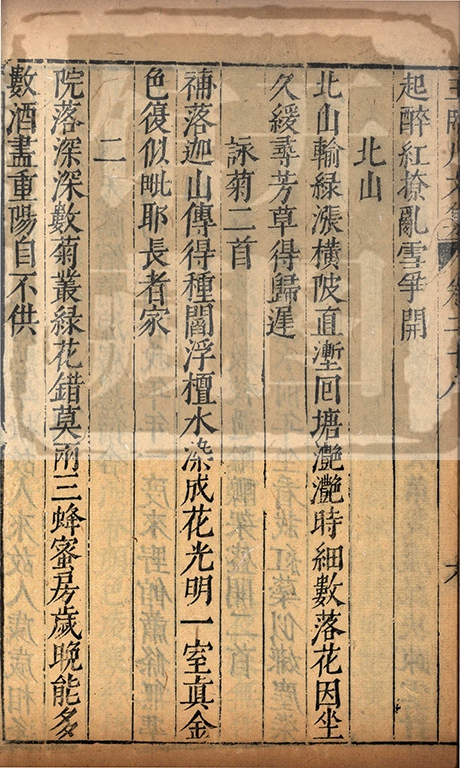 王臨川文集 卷二十八 六
起醉紅撩亂雪爭開
北山
北山輸緑漲橫陂直塹囘塘灩灩時細數落花因坐
久緩尋芳草得歸遲
詠菊二首
補落迦山傳得種閻浮檀水染成花光明一室眞金
色復似毗耶長者家
二
院落深深數菊叢緑花錯莫兩三蜂蜜房歲晚能多
數酒盡重陽自不供